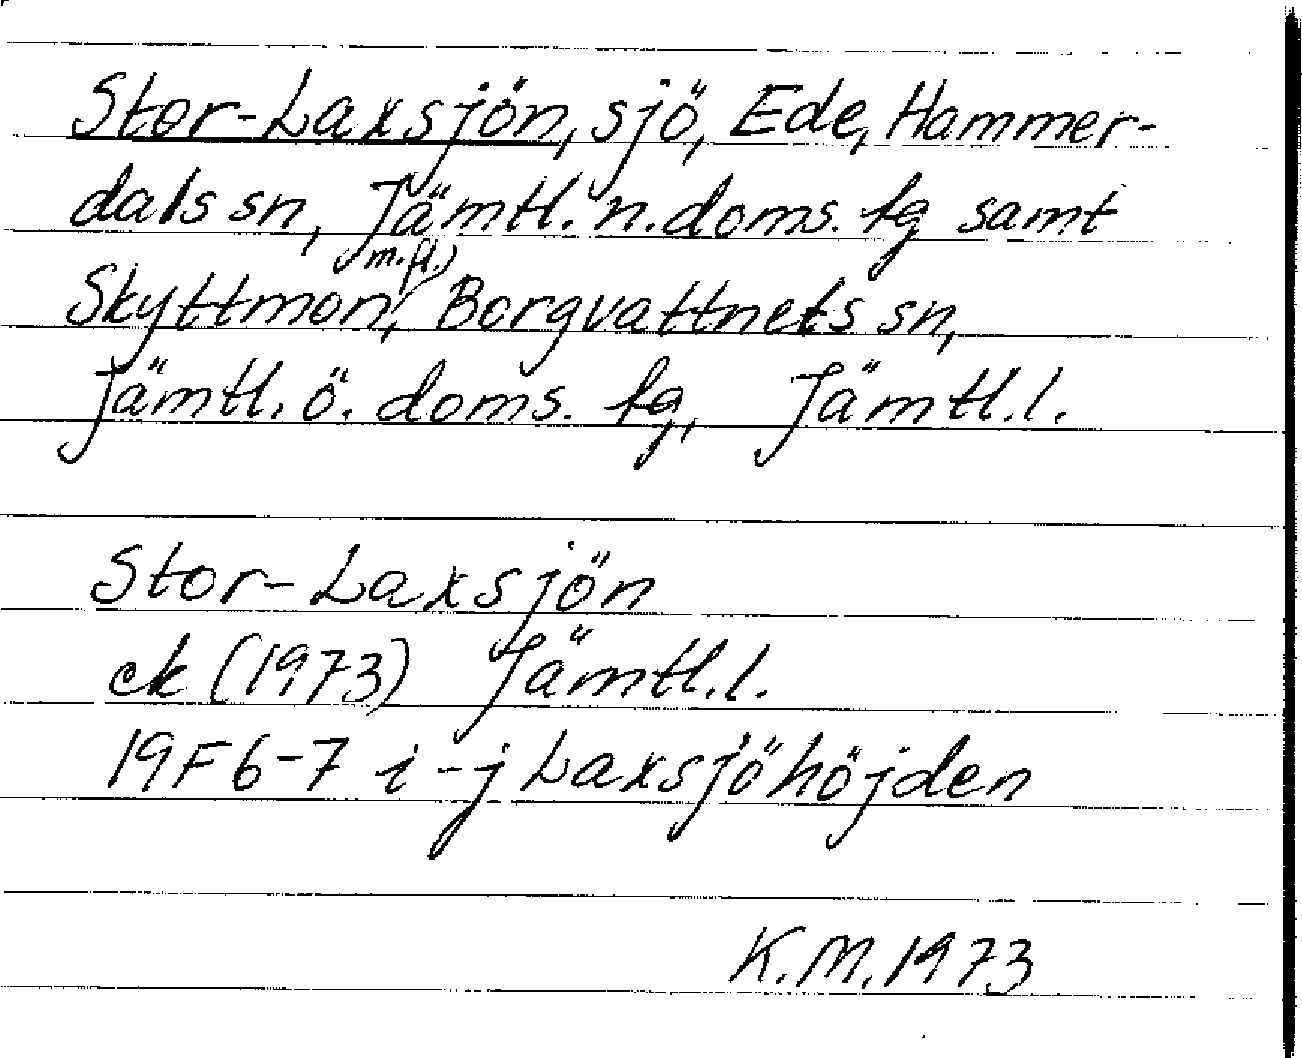 Stor-Laxsjön, sjö, Ede, Hammer-
dals sn, Jämtl. n. doms. tg samt
m.fl.,
Skyttmon, Borgvattnets sn,
Jämtl. ö. doms. tg, Jämtl. l.
Stor-Laxsjön
ek (1973) Jämtl. l.
19F 6-7 i-j Laxsjöhöjden
K.M. 1973